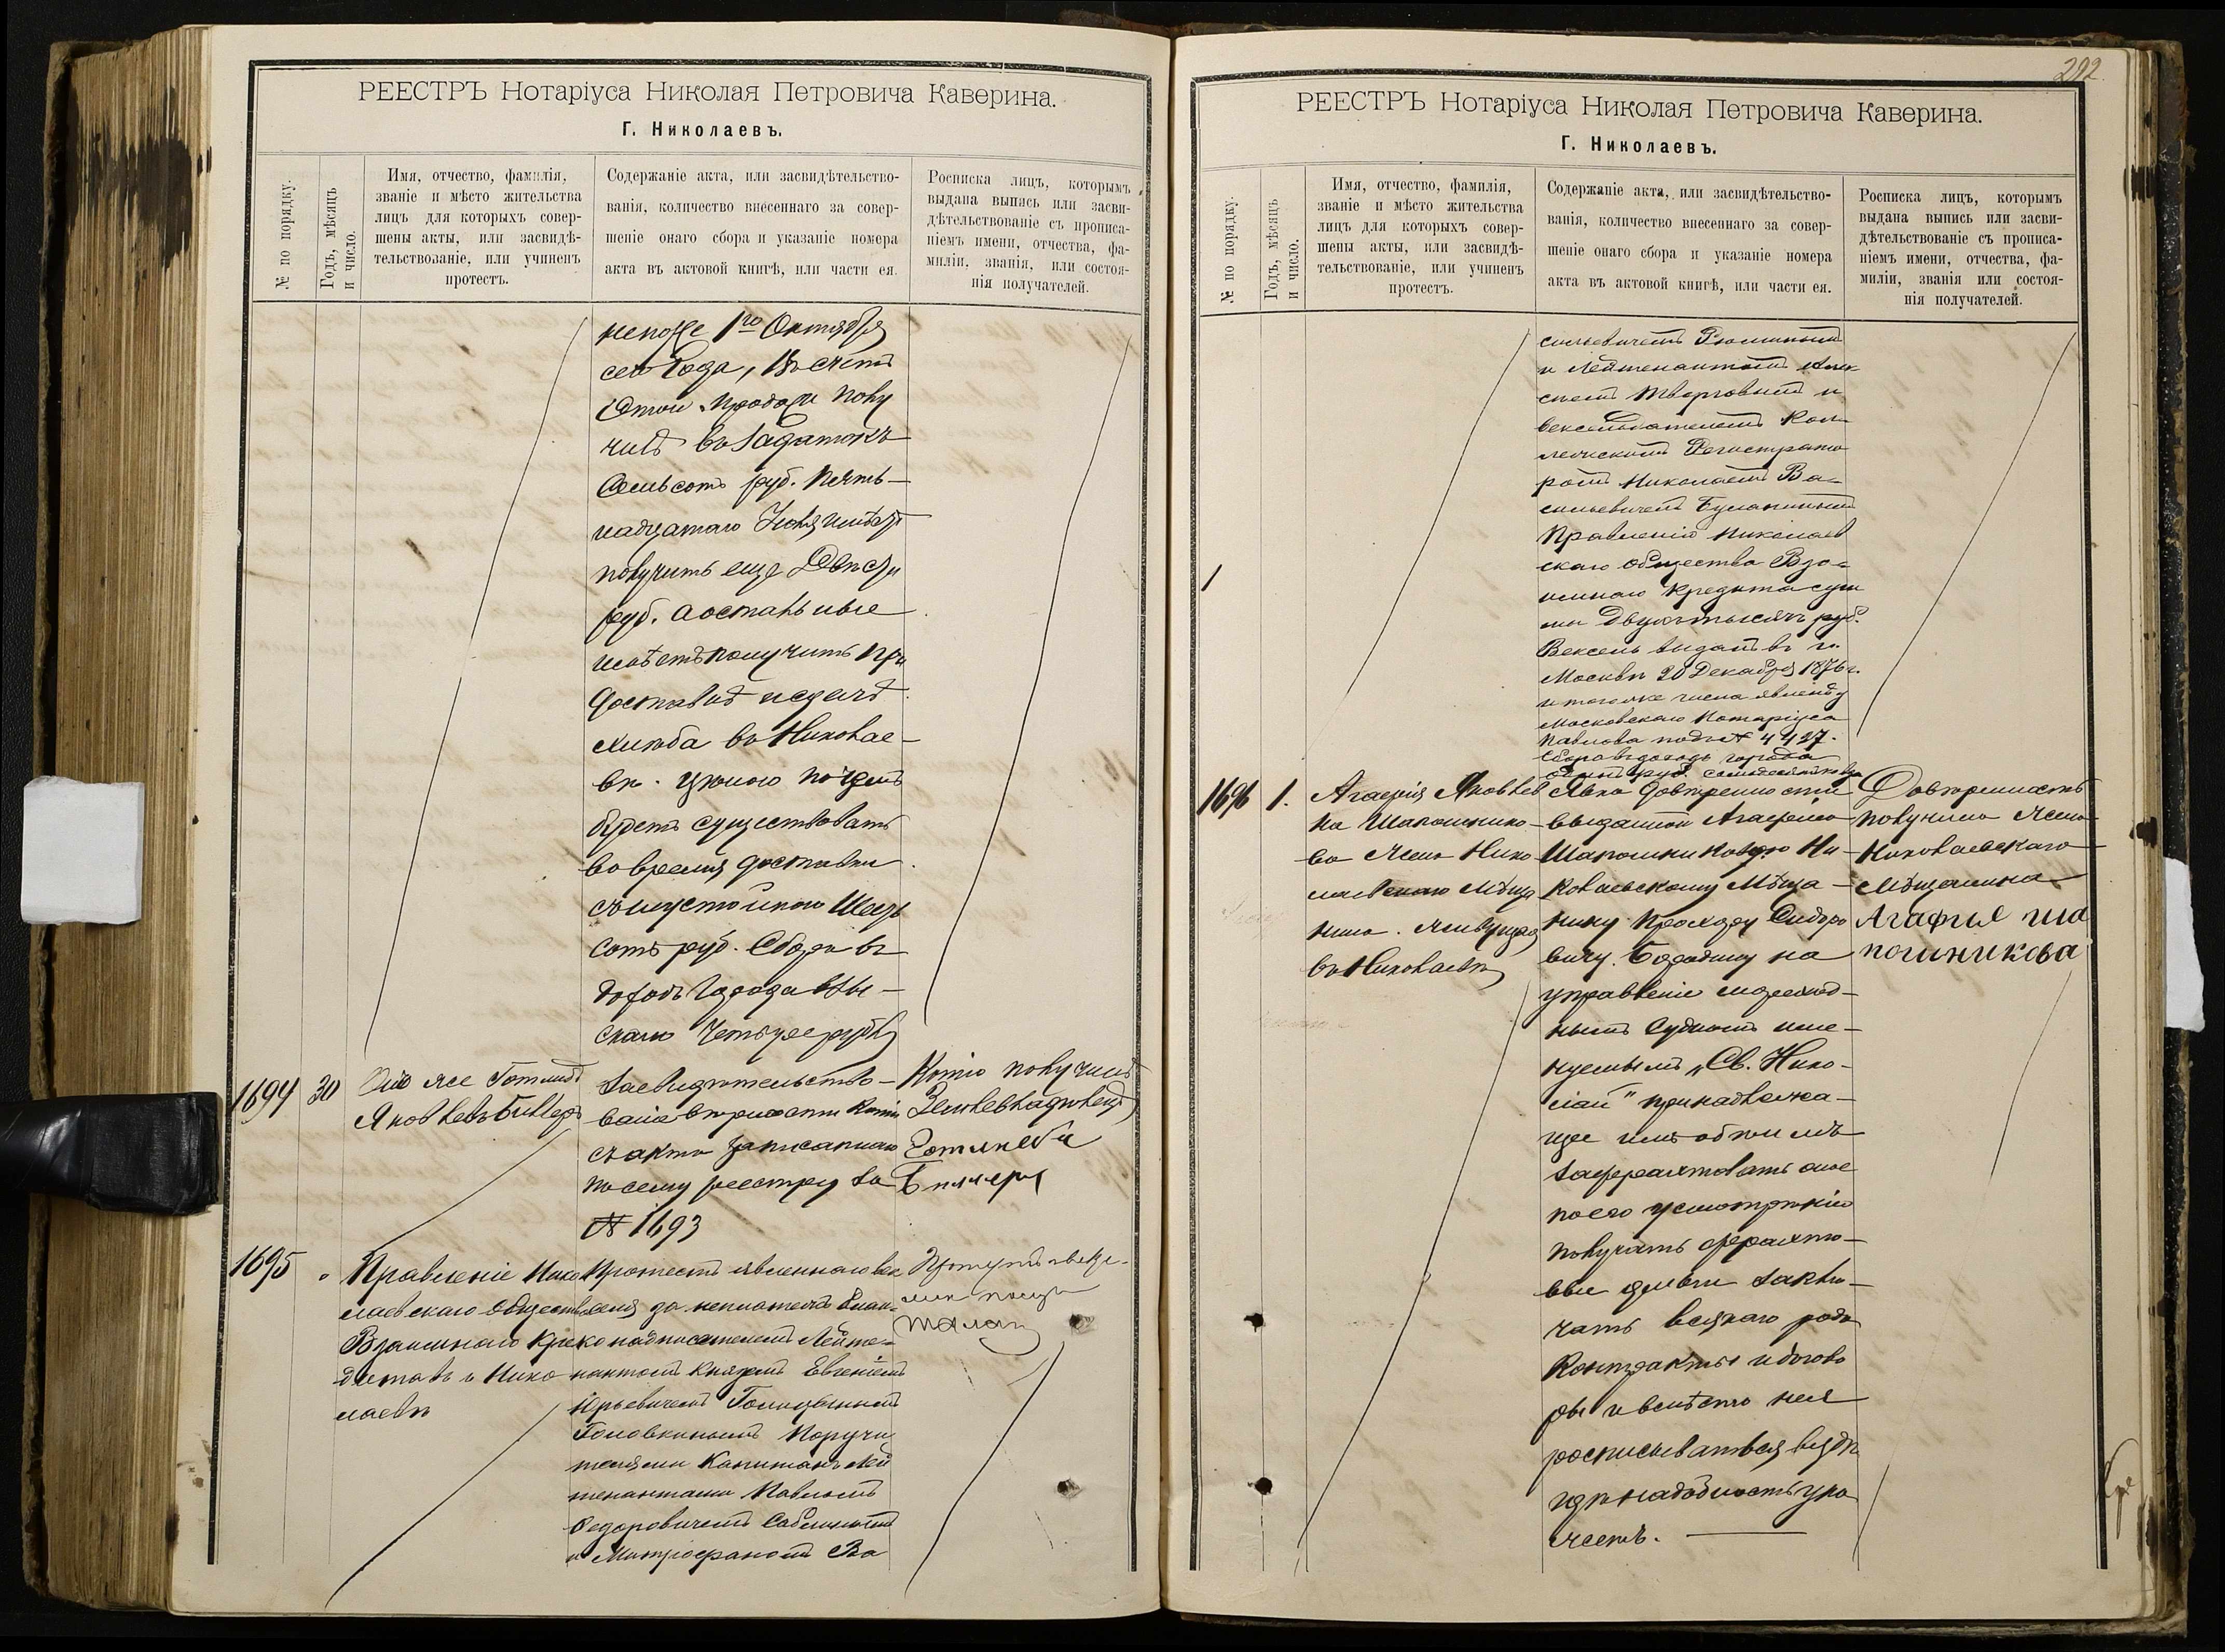 РЕЕСТРЪ Нотаріуса Николая Петровича Каверина.
Г. Николаевъ.
№ по порядку.
Годъ, мѣсяцъ
и число.
Имя, отчество, фамилія,
званіе и мѣсто жительства
лицъ для которыхъ совер-
шены акты, или засвидѣ-
тельствованіе, или учиненъ
протестъ.
Содержаніе акта, или засвидѣтельство-
ванія, количество внесеннаго за совер-
шеніе онаго сбора и указаніе номера
акта въ актовой книгѣ, или части ея.
Росписка лицъ, которымъ
выдана выпись или засви-
дѣтельствованіе съ прописа-
ніемъ имени, отчества, фа-
миліи, званія, или состоя-
нія получателей.
1го Октября
сего Года, въ счетъ
Этой продажи полу
чилъ въ задатокъ
Семьсотъ руб. Пять-
надцатаго Іюня имѣетъ
получить еще Двѣсти
руб. а остальные
имѣетъ получить при
доставкѣ и сдачѣ
хлѣба въ Николае-
вѣ. цѣною по чемъ
будетъ существовать
во время доставки
съ неустойкою Шесть
сотъ руб. Сбора въ
доходъ Города взы-
скано Четыре рубля
1694
30
Онъ же Готлибъ
Яковлевъ
Засвидѣтельство-
ваніе вѣрности копіи
съ акта записаннаго
по сему реестру за
№ 1693
Копію получилъ
Землевладѣлецъ
1695
Правленіе Нико
лаевскаго Общества
Взаимнаго Кре
дита въ г. Нико
лаевѣ
Протестъ явленнаго век
селя за неплатежъ блан-
ко надписателемъ Лейте-
нантомъ Княземъ Евгеніемъ
Юрьевичемъ Голицынымъ
Головкинымъ Поручи
телями Капитанъ Лей
тенантами Павломъ
Федоровичемъ
и Митрофаномъ Ва
202
РЕЕСТРЪ Нотаріуса Николая Петровича Каверина.
Г. Николаевъ.
№ по порядку.
Годъ, мѣсяцъ
и число.
Имя, отчество, фамилія,
званіе и мѣсто жительства
лицъ для которыхъ совер-
шены акты, или засвидѣ-
тельствованіе, или учиненъ
протестъ.
Содержаніе акта, или засвидѣтельство-
ванія, количество внесеннаго за совер-
шеніе онаго сбора и указаніе номера
акта въ актовой книгѣ, или части ея.
Росписка лицъ, которымъ
выдана выпись или засви-
дѣтельствованіе съ прописа-
ніемъ имени, отчества, фа-
миліи, званія или состоя-
нія получателей.
сильевичемъ
и Лейтенантомъ
и
векселедателемъ Кол-
лежскимъ Регистрато
ромъ Николаемъ Ва-
сильевичемъ
Правленію Николаев
скаго общества Вза-
имнаго кредита сум
мы Двухъ тысячъ руб.
Вексель выданъ въ г.
Москвѣ 20 Декабря 1876 г.
и того же числа явленъ у
Московскаго Нотаріуса
Павлова подъ № 4427.
Сбора въ доходъ города
1696
1.
Агафія Яковлев
на Шапошнико-
ва Жена Нико
лаевскаго Мѣща
нина. Живущая
въ Николаевѣ
Явка довѣренности
выданной Агафіею
Шапошниковою Ни-
колаевскому Мѣща-
нину Прохору Сидоро
вичу Бородину на
управленіе мореход-
нымъ Судномъ име-
нуемымъ „Св. Нико-
лай" принадлежа-
щее
зафрахтовать оное
по его усмотрѣнію
получать фрахто-
вые деньги заклю-
чать всякаго рода
Контракты и догово
ры и вмѣсто нея
росписываться вездѣ
гдѣ надобность ука
жетъ.
Довѣренность
получила Жена
Николаевскаго
Мѣщанина
Агафія Ша
пошникова